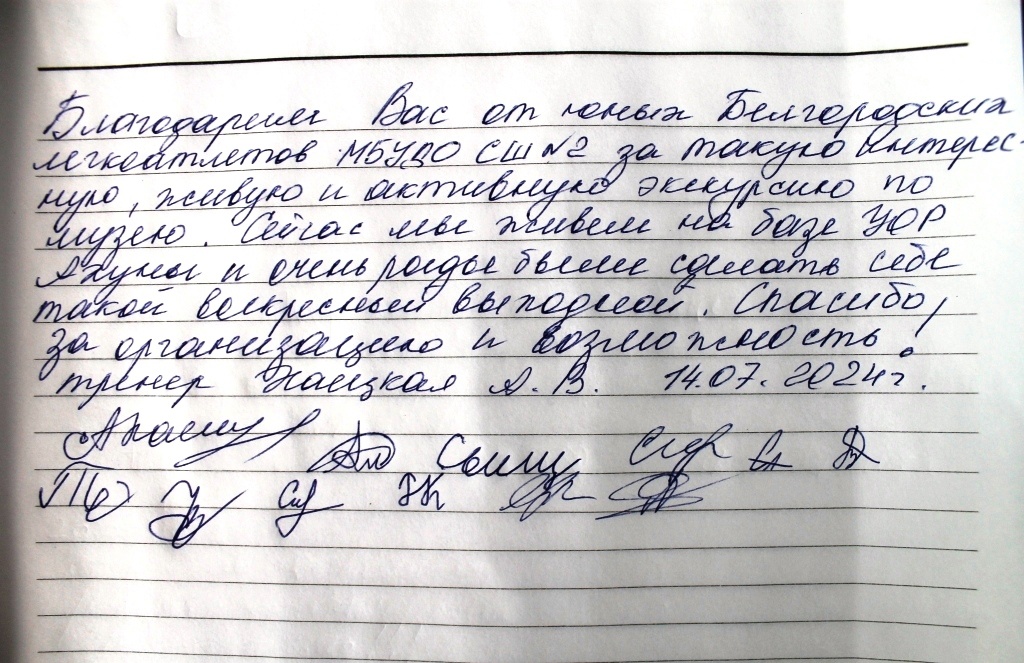 Благодарим Вас от юных Белгородских
легкоатлетов МБУДО СШ №2 за такую интерес-
ную, живую и активную экскурсию по
музею. Сейчас мы живем на базе УОР
Ахуны и очень рады были сделать себе
такой воскресный выходной. Спасибо,
за организацию и возможность!
тренер А. В. 14.07.2024г.